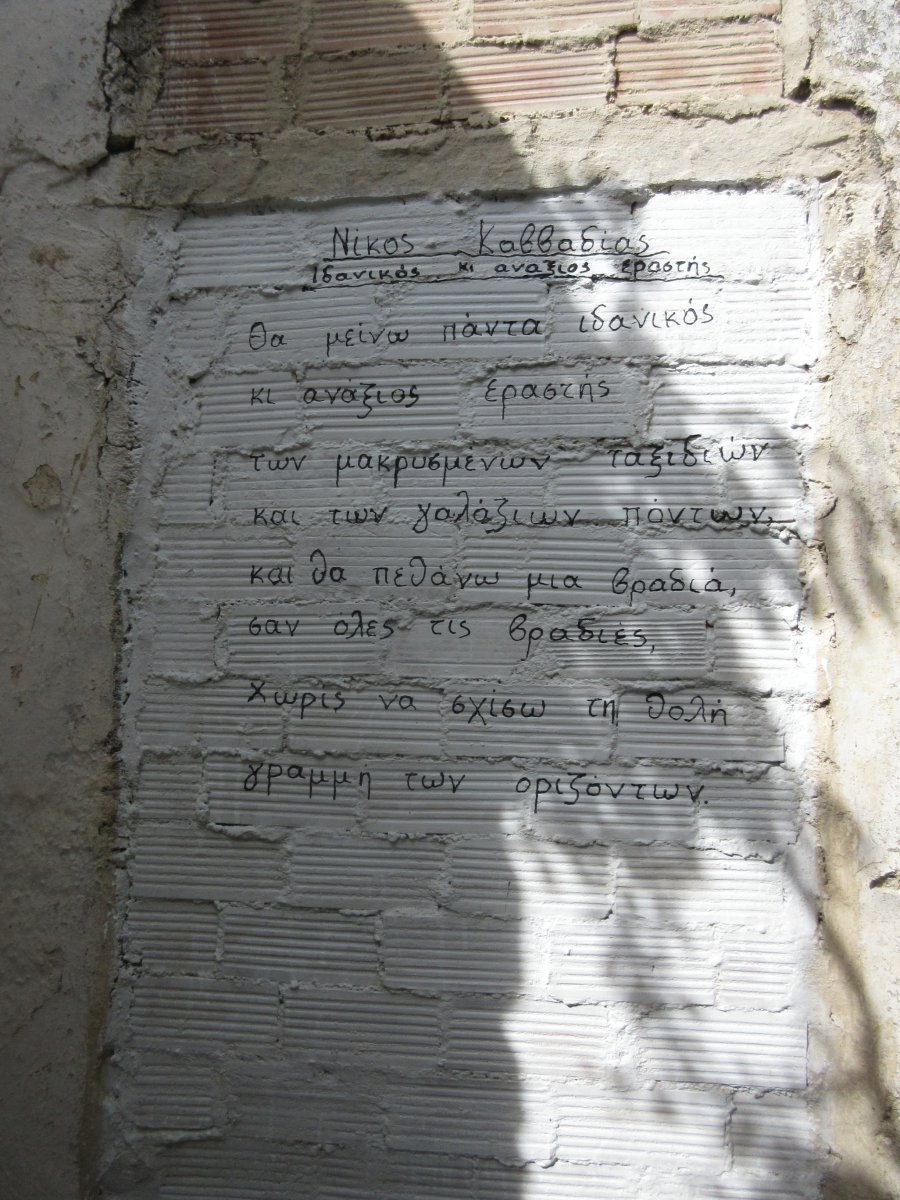 Νίκος Καββαδίας
Ιδανικός κι ανάξιος εραστής
Θα μείνω πάντα ιδανικός
κι ανάξιος εραστής
των μακρυσμένων ταξιδιών
και των γαλάζιων πόντων,
και θα πεθάνω μια βραδιά,
σαν όλες τις βραδιές,
χωρίς να σχίσω τη θολή
γραμμή των οριζόντων.